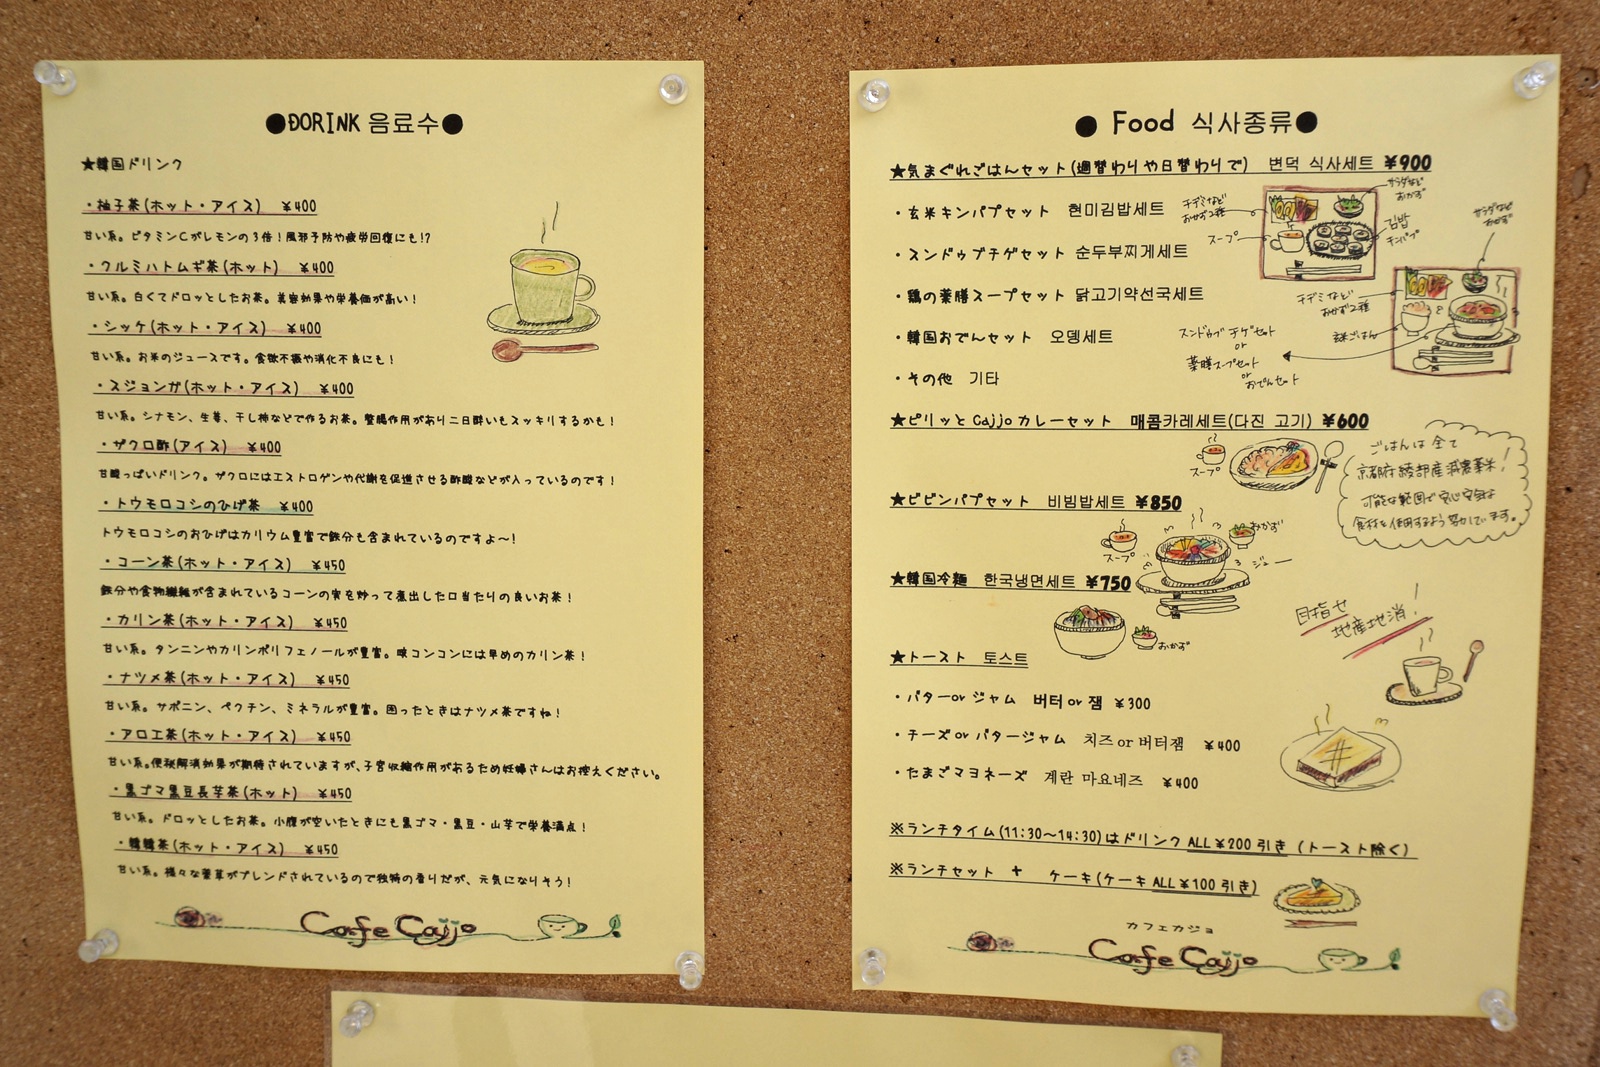 ●DORINK 음료수●
★韓国ドリンク
・柚子茶(ホット・アイス) ¥400
甘い系。ビタミンCがレモンの3倍！風邪予防や疲労回復にも!?
・クルミハトムギ茶(ホット) ¥400
甘い系。白くてドロッとしたお茶。美容効果や栄養価が高い！
・シッケ(ホット・アイス) ¥400
甘い系。お米のジュースです。食欲不振や消化不良にも！
・スジョンガ(ホット・アイス) ¥400
甘い系。シナモン、生姜、干し柿などで作るお茶。整腸作用があり二日酔いもスッキリするかも！
・ザクロ酢(アイス) ¥400
甘酸っぱいドリンク。ザクロにはエストロゲンや代謝を促進させる酢酸などが入っているのです！
・トウモロコシのひげ茶 ¥400
トウモロコシのおひげはカリウム豊富で鉄分も含まれているのですよ～！
・コーン茶(ホット・アイス) ¥450
鉄分や食物繊維が含まれているコーンの実を炒って煮出した口当たりの良いお茶！
・カリン茶(ホット・アイス) ¥450
甘い系。タンニンやカリンポリフェノールが豊富。咳コンコンには早めのカリン茶！
・ナツメ茶(ホット・アイス) ¥450
甘い系。サポニン、ペクチン、ミネラルが豊富。困ったときはナツメ茶ですね！
・アロエ茶(ホット・アイス) ¥450
甘い系。便秘解消効果が期待されていますが、子宮収縮作用があるため妊婦さんはお控えください。
・黒ゴマ黒豆長芋茶(ホット) ¥450
甘い系。ドロッとしたお茶。小腹が空いたときにも黒ゴマ・黒豆・山芋で栄養満点！
・韓韓茶(ホット・アイス) ¥450
甘い系。様々な薬草がブレンドされているので独特の香りだが、元気になりそう！
Cafe Cajjo
● Food 식사종류●
★気まぐれごはんセット(週替わりや日替わりで) 변덕 식사세트 ¥900
・玄米キンパプセット 현미김밥세트
チヂミなど
おかず2種
スープ
サラダなど
おかず
김밥
キンパプ
・スンドゥブチゲセット 순두부찌게세트
・鶏の薬膳スープセット 닭고기약선국세트
・韓国おでんセット 오뎅세트
・その他 기타
サラダなど
おかず
チヂミなど
おかず2種
玄米ごはん
スンドゥブチゲセット
or
薬膳スープセット
or
おでんセット
★ピリッとCajjoカレーセット 매콤카레세트(다진 고기) ¥600
スープ
ごはんは全て
京都府綾部産減農薬米！
可能な範囲で安心安全な
食材を使用するよう努めています。
★ビビンパプセット 비빔밥세트 ¥850
スープ
おかず
ジュー
★韓国冷麺 한국냉면세트 ¥750
おかず
目指せ
地産地消！
★トースト 토스트
・バターorジャム 버터or잼 ¥300
・チーズorバタージャム 치즈or버터잼 ¥400
・たまごマヨネーズ 계란 마요네즈 ¥400
※ランチタイム(11:30～14:30)はドリンクALL¥200引き (トースト除く)
※ランチセット + ケーキ(ケーキALL¥100引き)
カフェカジョ
Cafe Cajjo